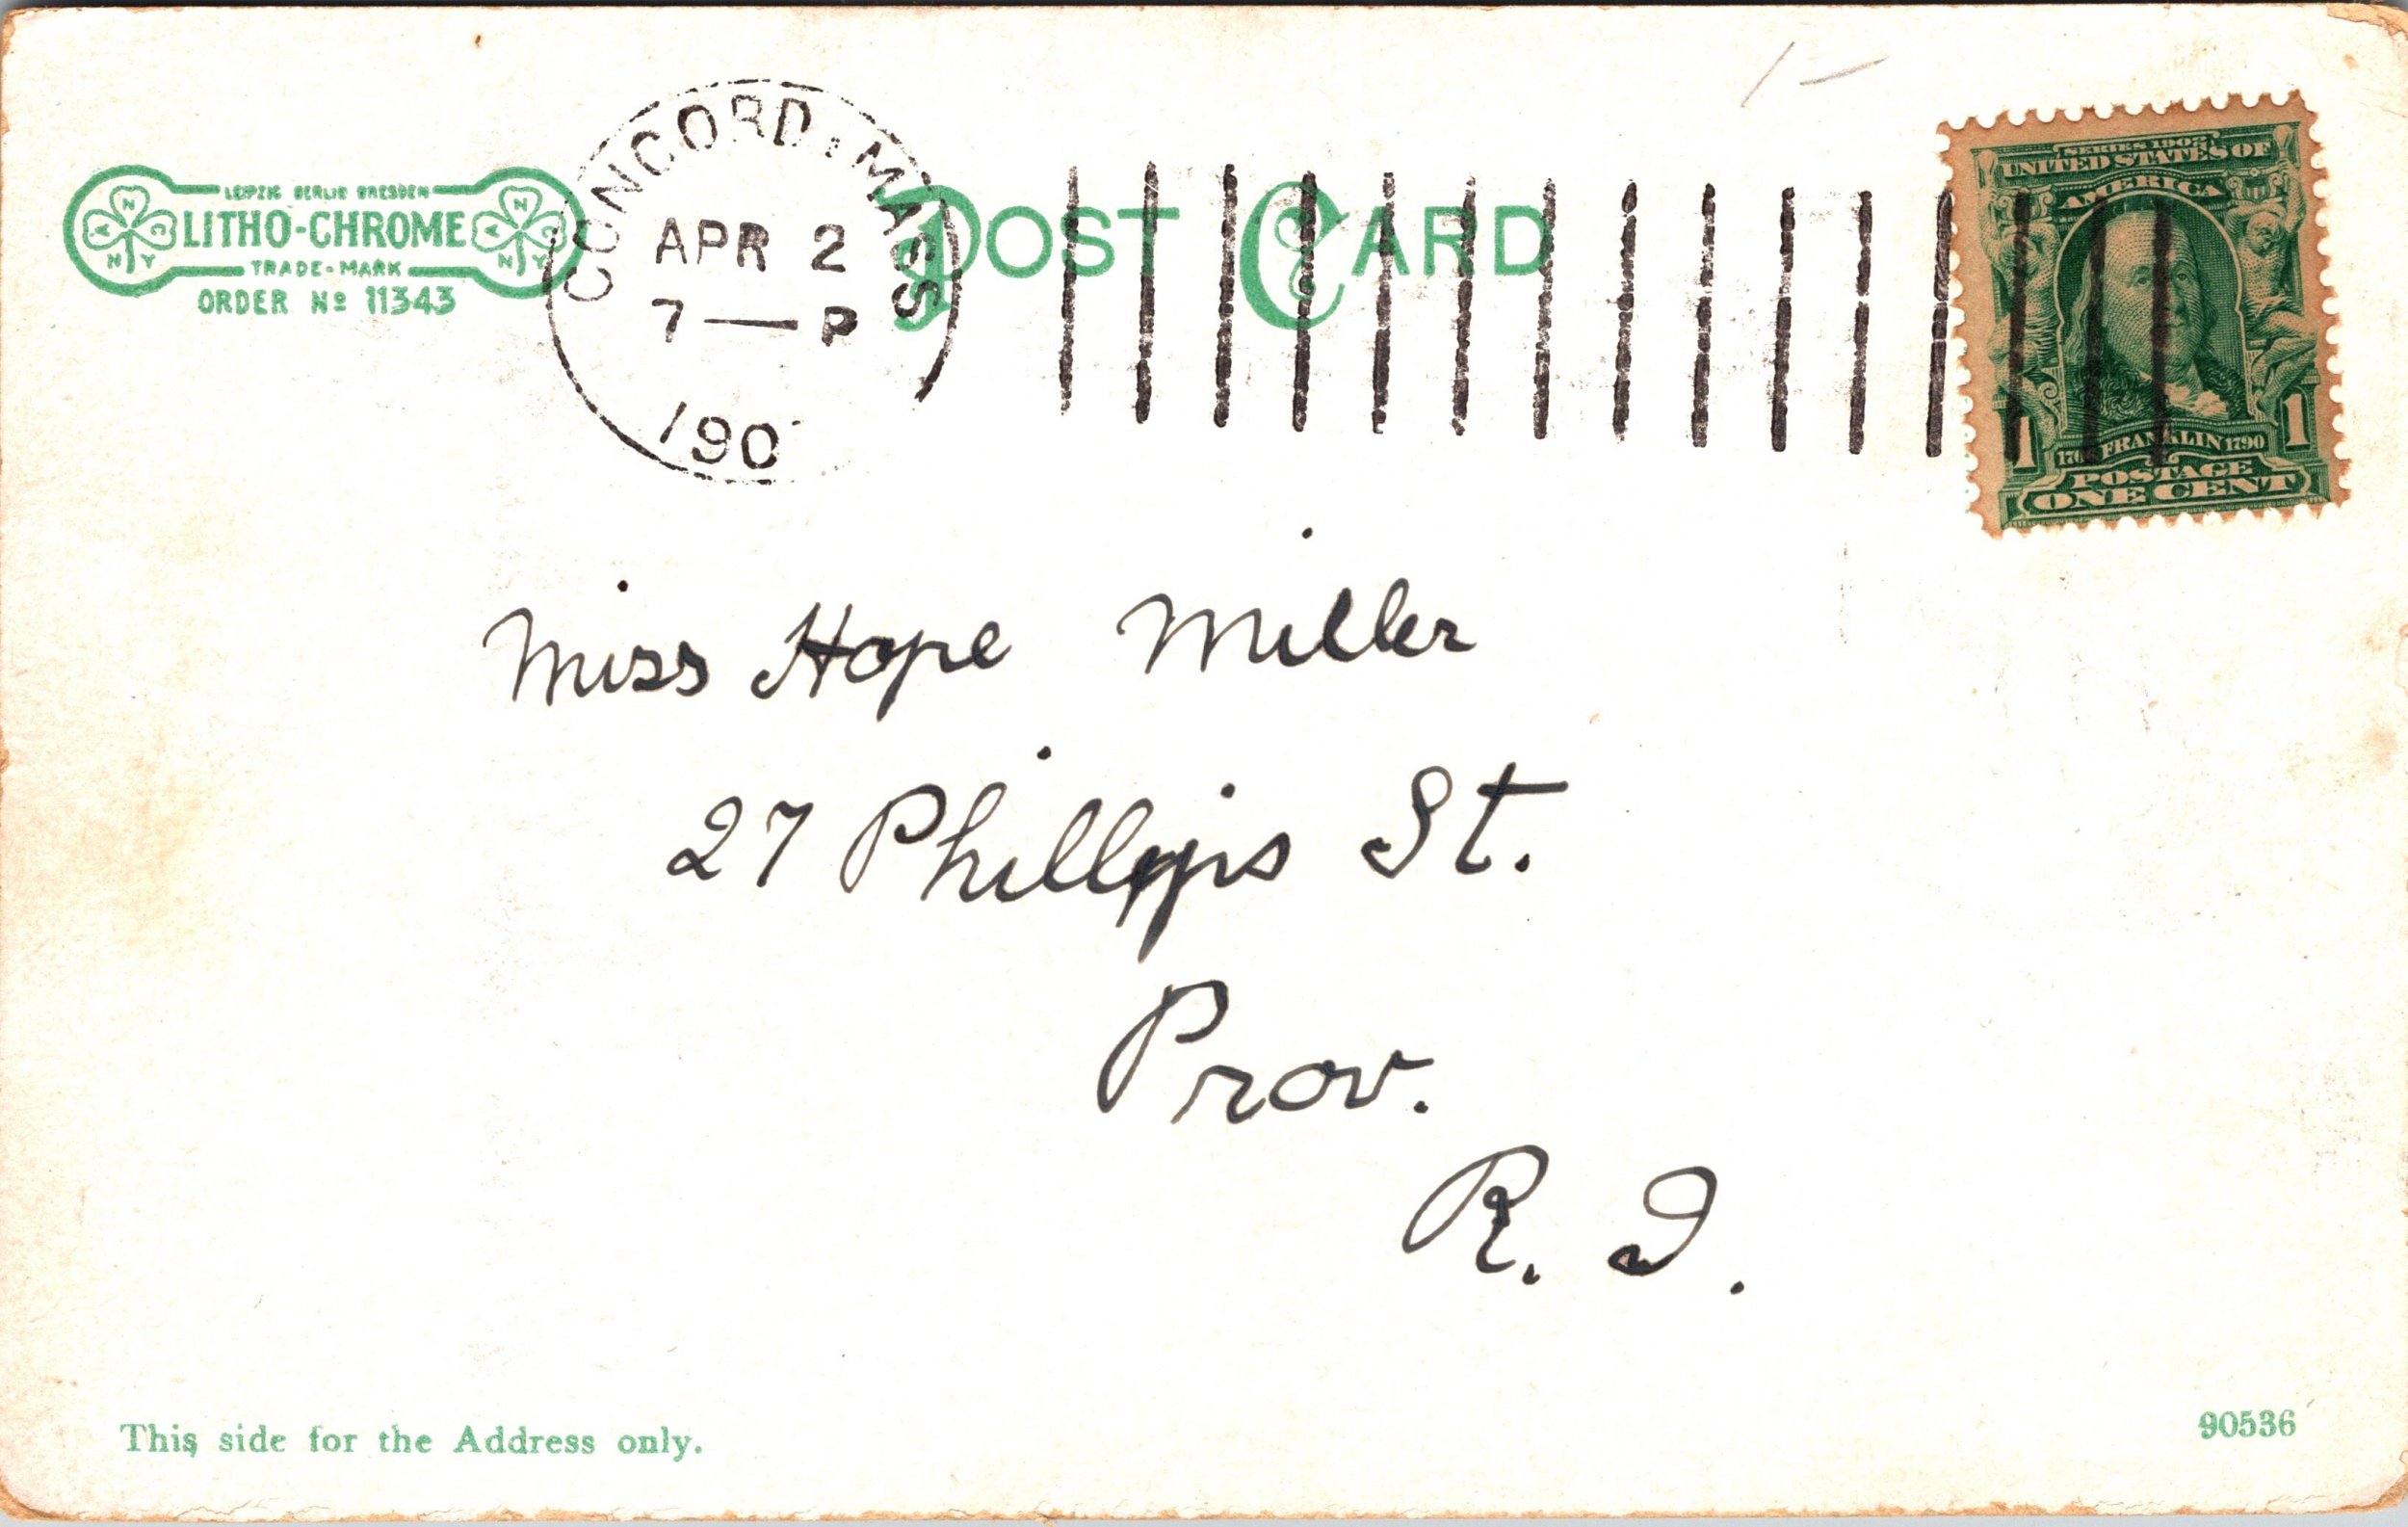 LEIPZIG BERLIN DRESDEN
LITHO-CHROME
TRADE-MARK
ORDER Nº 11343
CONCORD, MASS
APR 2
7 — P
190
POST CARD
1 –
SERIES 1902
UNITED STATES OF
AMERICA
FRANKLIN 1790
1 1
POSTAGE
ONE CENT
Miss Hope Miller
27 Phillips St.
Prov.
R. I.
This side for the Address only.
90536